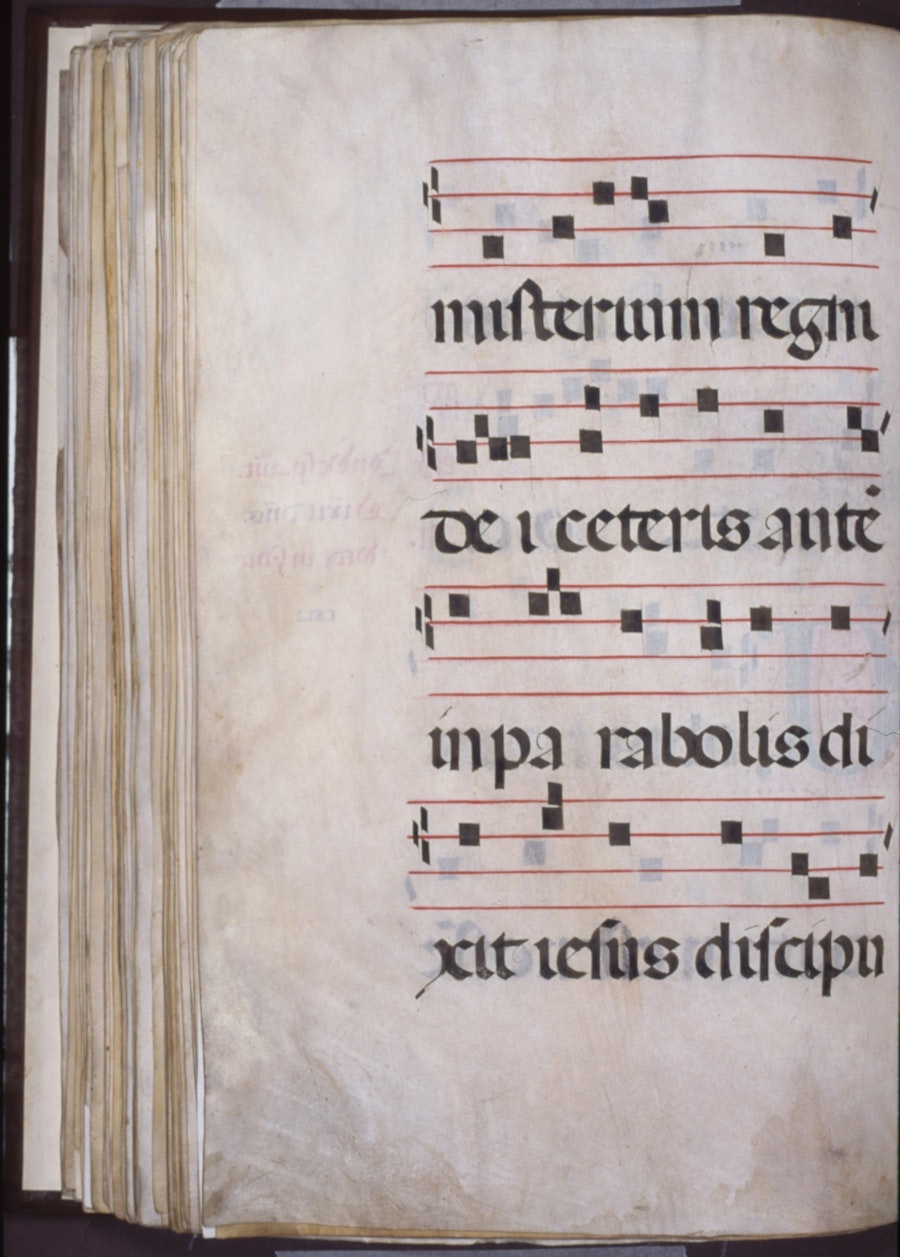 misterium regni
dei ceteris autē
in pa rabolis di
xit iesus discipu